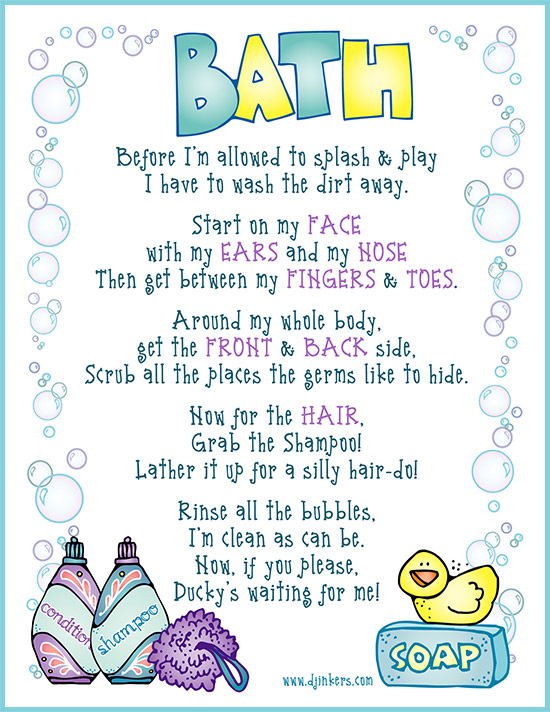 BATH
Before I'm allowed to splash & play
I have to wash the dirt away.
Start on my FACE
with my EARS and my NOSE
Then get between my FINGERS & TOES.
Around my whole body,
get the FRONT & BACK side,
Scrub all the places the germs like to hide.
Now for the HAIR,
Grab the Shampoo!
Lather it up for a silly hair-do!
Rinse all the bubbles,
I'm clean as can be.
Now, if you please,
Ducky's waiting for me!
condition
shampoo
SOAP
www.djinkers.com